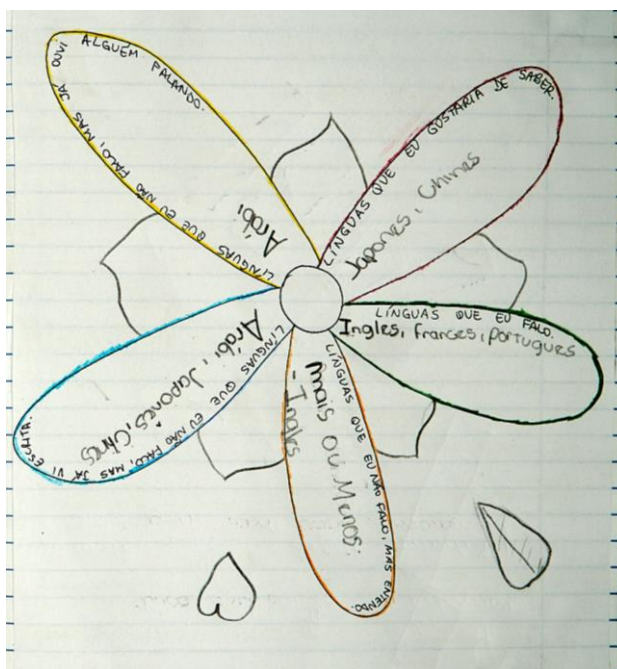 LÍNGUAS QUE EU NÃO FALO, MAS JÁ OUVI ALGUÉM FALANDO.
Árabi
LÍNGUAS QUE EU GOSTARIA DE SABER.
Japones, Chines
LÍNGUAS QUE EU FALO.
Ingles, frances, portugues
LÍNGUAS QUE EU NÃO FALO, MAS ENTENDO.
mais ou Menos:
- Ingles
LÍNGUAS QUE EU NÃO FALO, MAS JÁ VI ESCRITA.
Árabi, Japonês, Chines